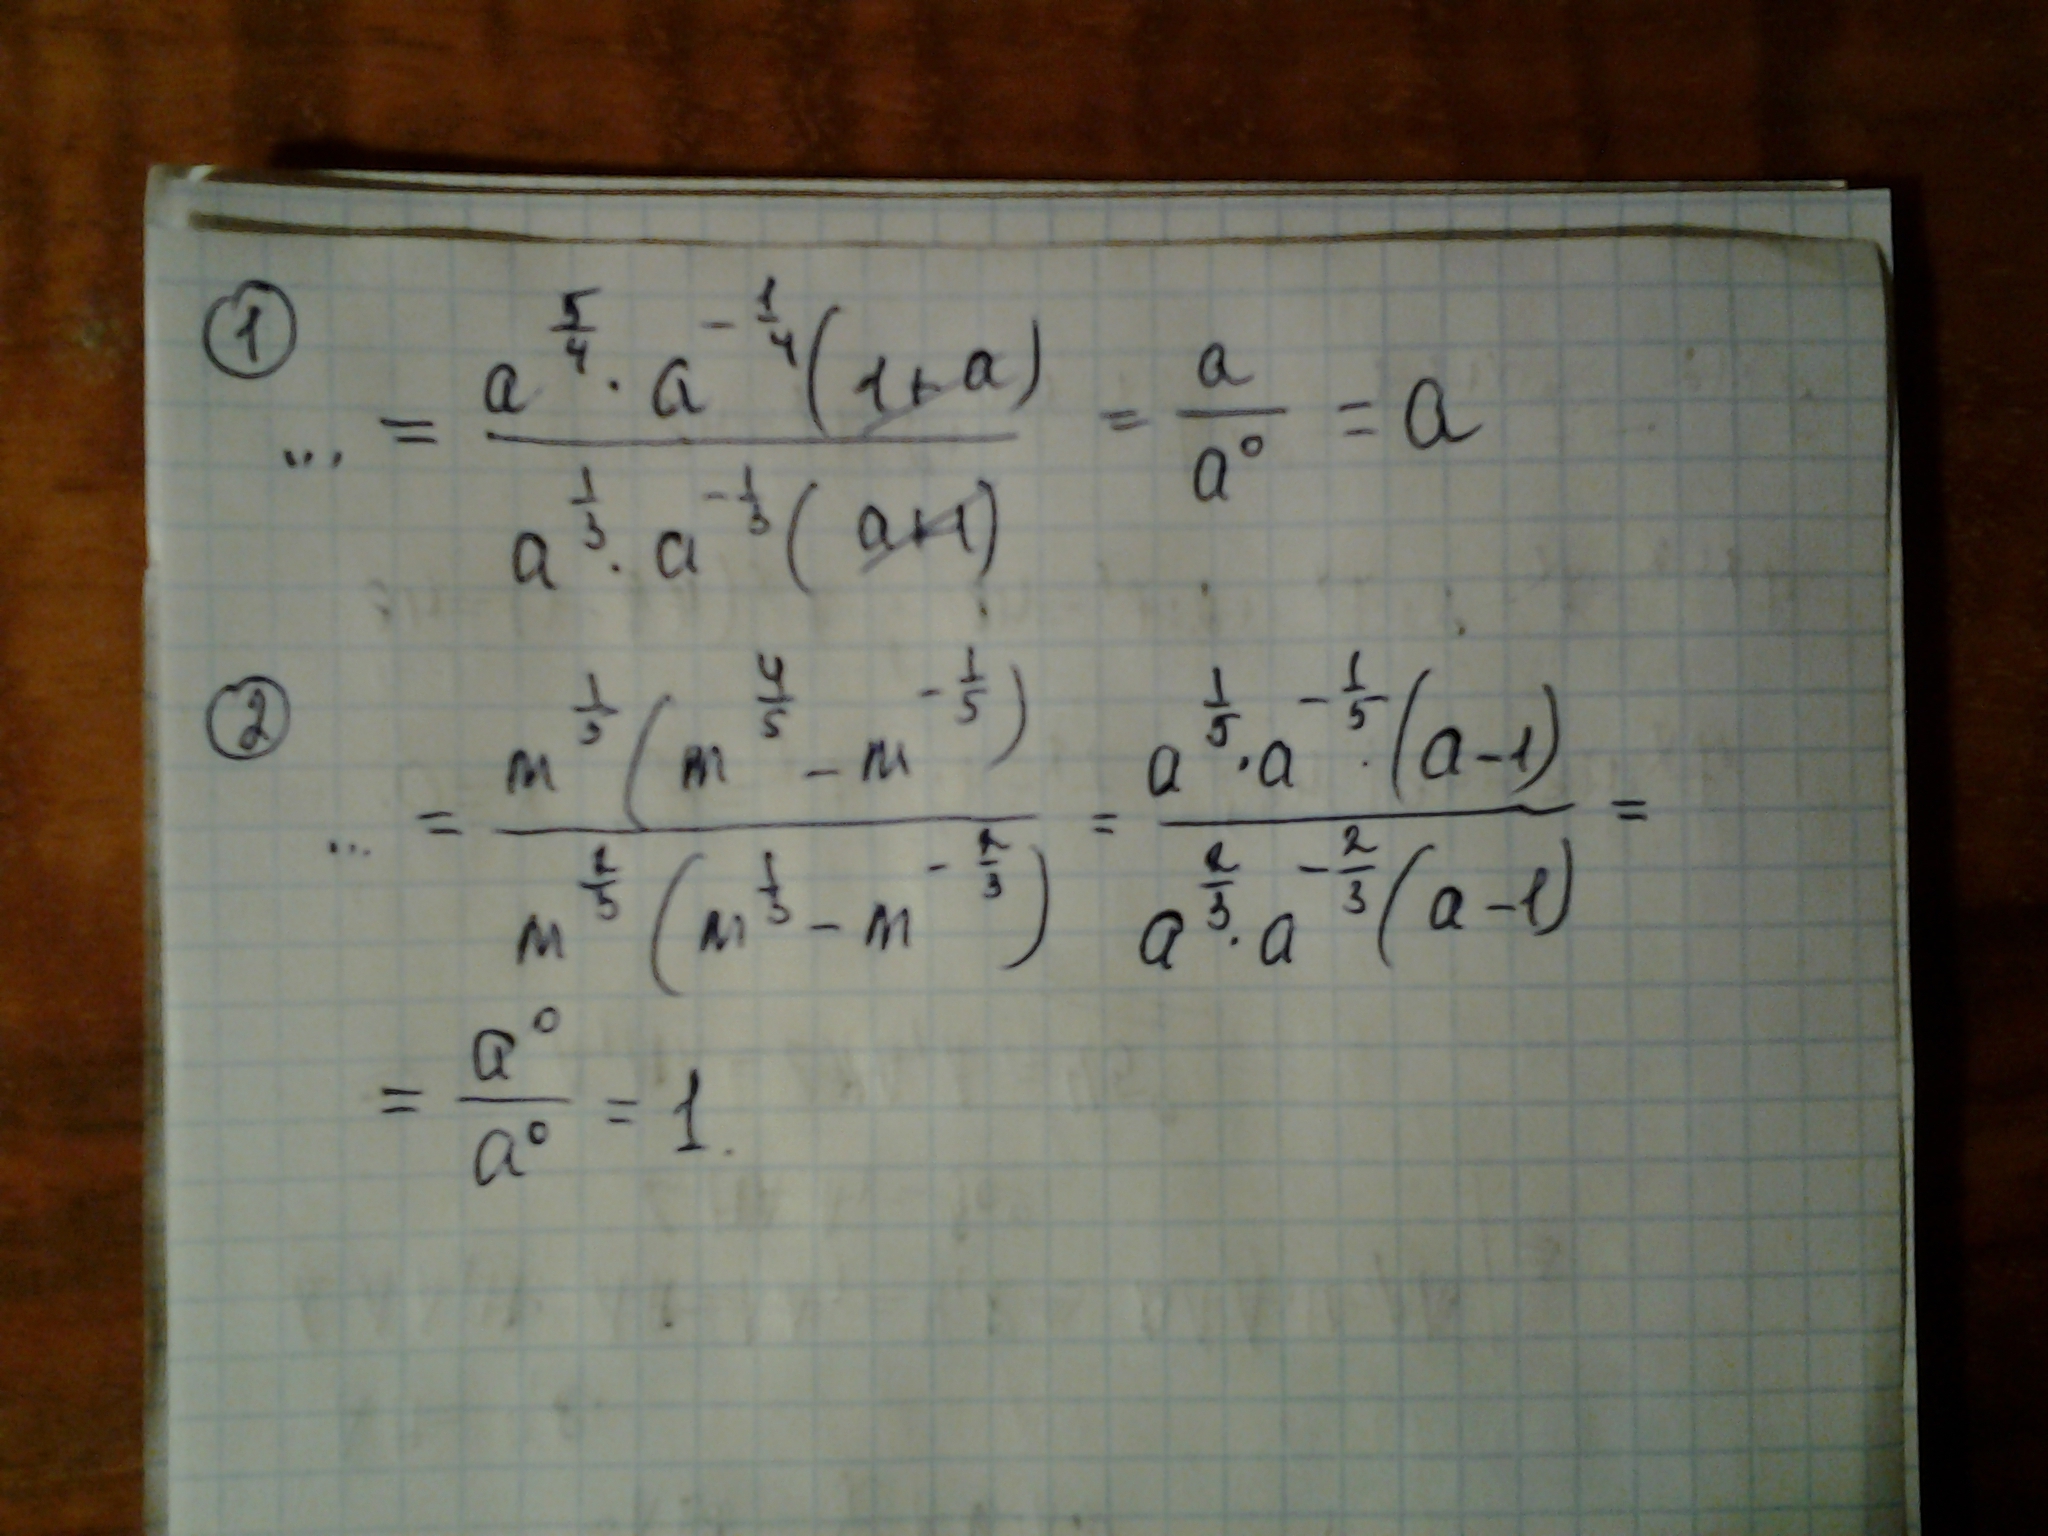 ① ... = \frac{a^{\frac{5}{4}} · a^{-\frac{1}{4}} (1+a)}{a^{\frac{1}{3}} · a^{-\frac{1}{3}} (a+1)} = \frac{a}{a^0} = a
② ... = \frac{m^{\frac{1}{5}} (m^{\frac{4}{5}} - m^{-\frac{1}{5}})}{m^{\frac{2}{3}} (m^{\frac{1}{3}} - m^{-\frac{2}{3}})} = \frac{a^{\frac{1}{5}} · a^{-\frac{1}{5}} · (a-1)}{a^{\frac{2}{3}} · a^{-\frac{2}{3}} (a-1)} =
= \frac{a^0}{a^0} = 1.